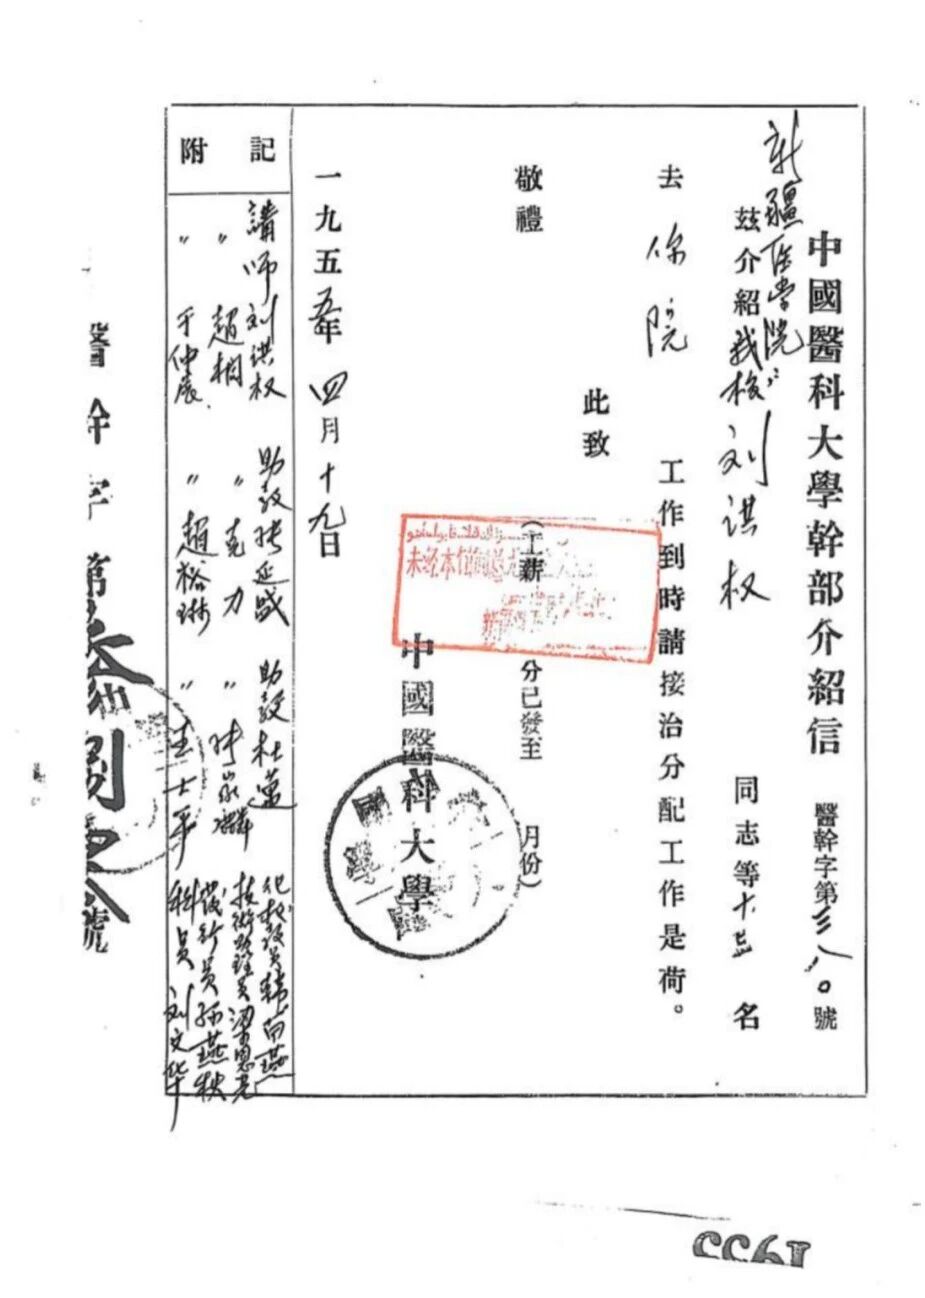 中國醫科大學幹部介紹信 醫幹字第三八〇號
新疆医学院:
茲介紹我校刘淇权同志等十三名
去你院工作到時請接洽分配工作是荷。
此致
敬禮
(工薪 分已發至 月份)
未经本馆同意
中國醫科大學
一九五五年四月十九日
附記
講師刘淇权 助教张延盛 助教杜蕙 化校設員韩南燕
〃 趙桐 〃 克力 〃 技術助理員梁恩光
〃 于仲宸 〃 趙裕琳 〃 王士平 科員刘文华
醫幹字第 號
1955